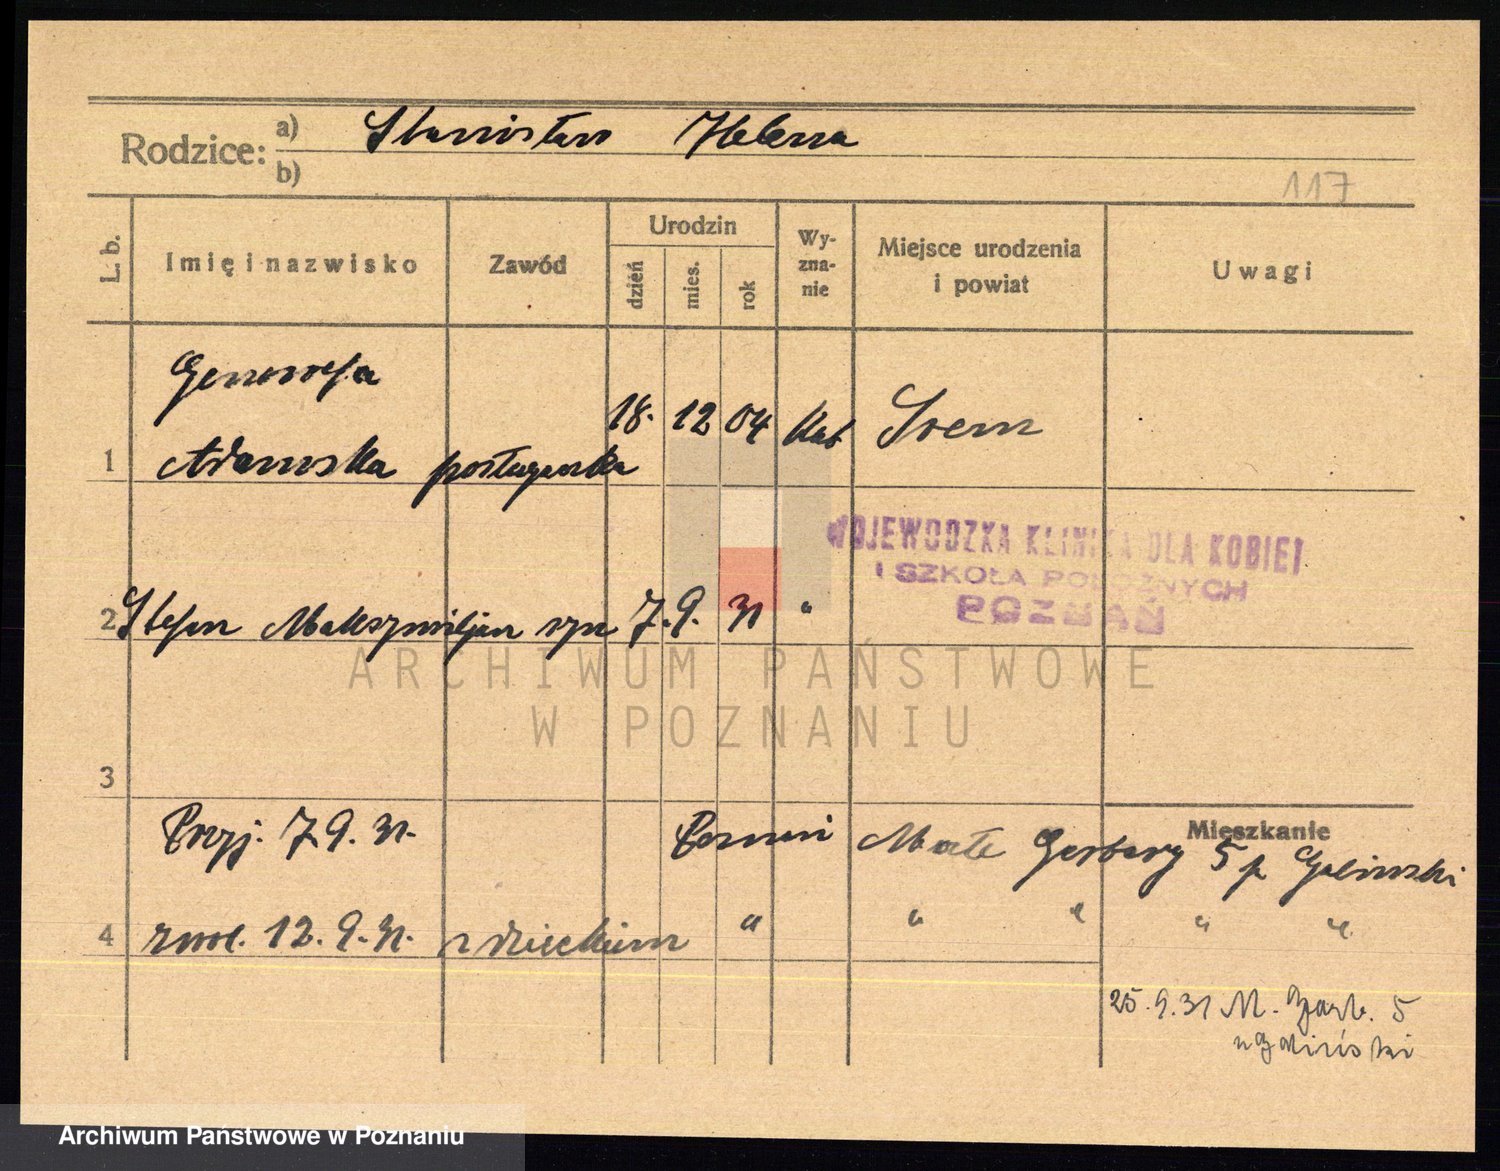 Rodzice: a) Stanisław Helena
b)
117
L. b.
Imię i nazwisko
Zawód
Urodzin
dzień
mies.
rok
Wy-
zna-
nie
Miejsce urodzenia
i powiat
Uwagi
Genowefa
1 Adamska posługaczka 18. 12 04 kat Śrem
WOJEWODZKA KLINIKA DLA KOBIET
I SZKOŁA POŁOŻNYCH
POZNAŃ
2 Stefan Maksymiljan syn 7. 9. 31 "
ARCHIWUM PAŃSTWOWE
W POZNANIU
3
Mieszkanie
Przyj. 7. 9. 31. Poznań Małe Garbary 5 p Galiński
4 zwol. 12. 9. 31. z dzieckiem " " " " "
25. 9. 31 M. Garb. 5
u Galiński
Archiwum Państwowe w Poznaniu